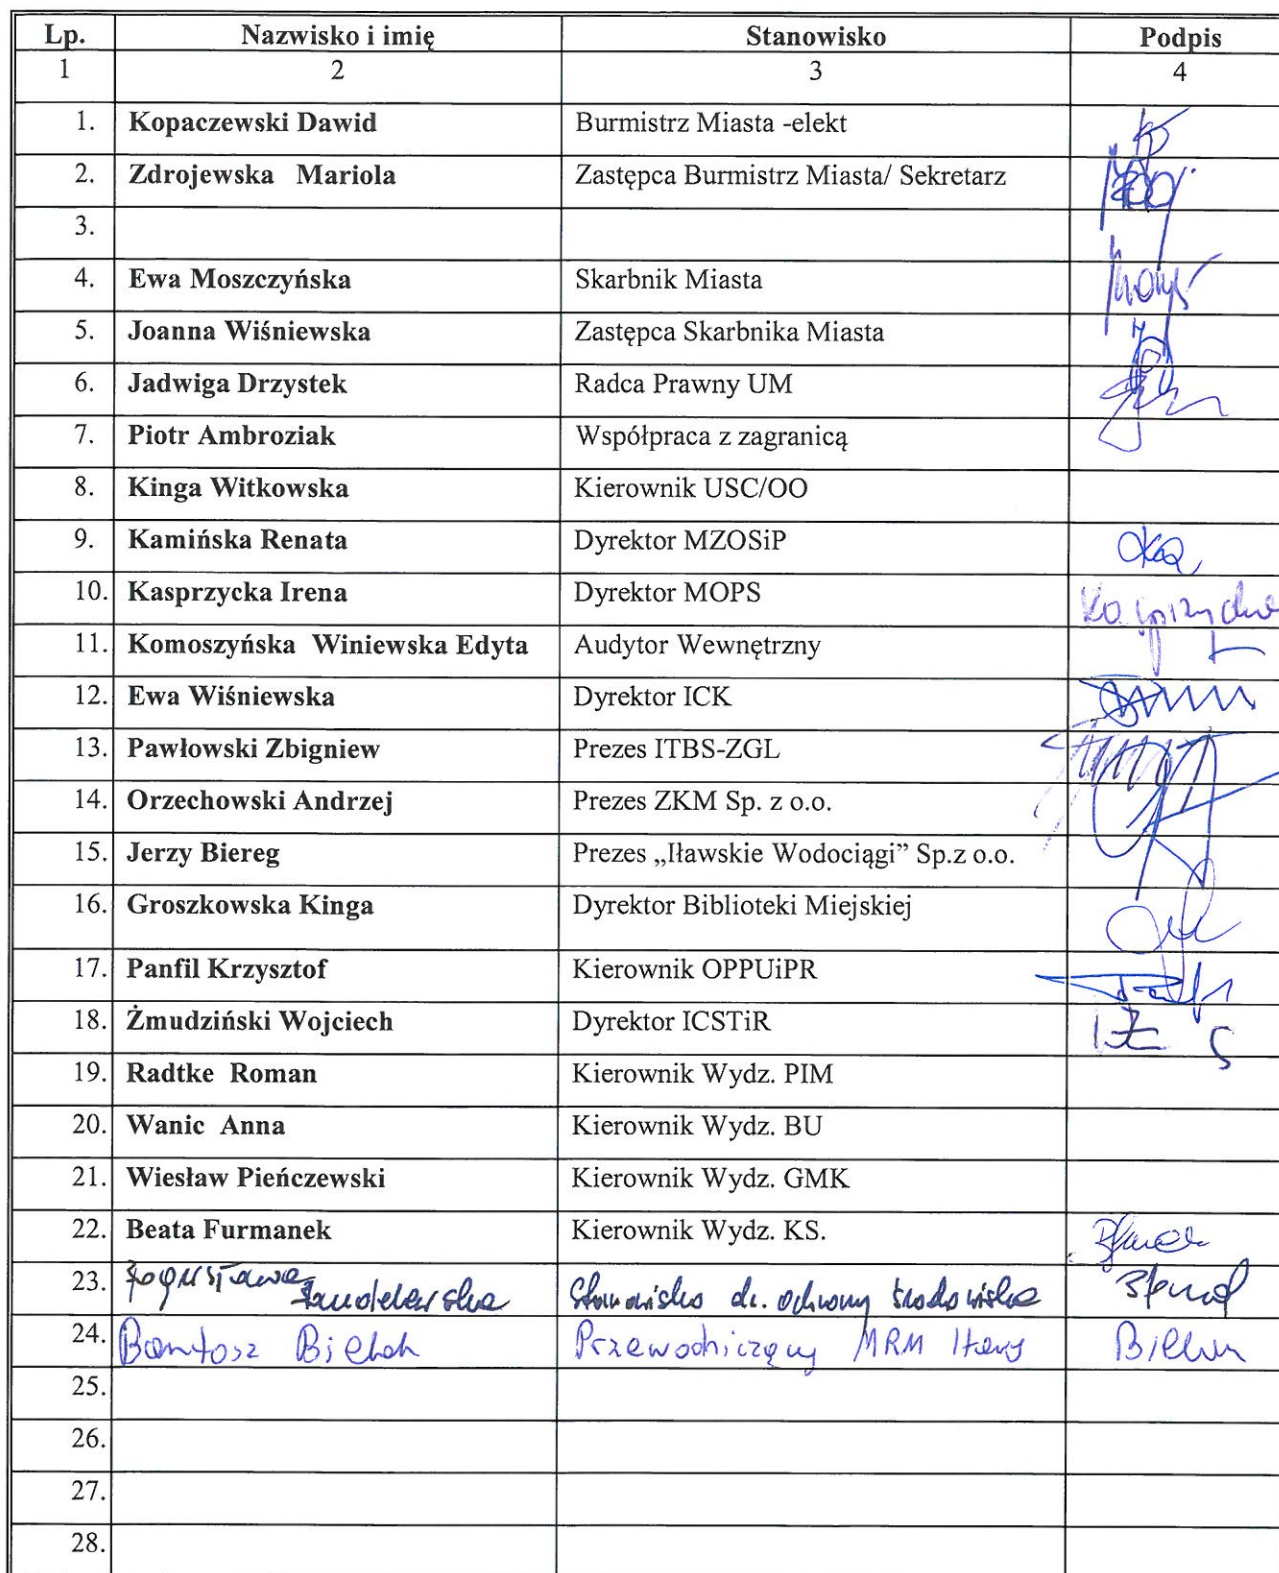 Lp. Nazwisko i imię Stanowisko Podpis
1 2 3 4
1. Kopaczewski Dawid Burmistrz Miasta -elekt
2. Zdrojewska Mariola Zastępca Burmistrz Miasta/ Sekretarz
3.
4. Ewa Moszczyńska Skarbnik Miasta
5. Joanna Wiśniewska Zastępca Skarbnika Miasta
6. Jadwiga Drzystek Radca Prawny UM
7. Piotr Ambroziak Współpraca z zagranicą
8. Kinga Witkowska Kierownik USC/OO
9. Kamińska Renata Dyrektor MZOSiP
10. Kasprzycka Irena Dyrektor MOPS
11. Komoszyńska Winiewska Edyta Audytor Wewnętrzny
12. Ewa Wiśniewska Dyrektor ICK
13. Pawłowski Zbigniew Prezes ITBS-ZGL
14. Orzechowski Andrzej Prezes ZKM Sp. z o.o.
15. Jerzy Biereg Prezes „Iławskie Wodociągi” Sp.z o.o.
16. Groszkowska Kinga Dyrektor Biblioteki Miejskiej
17. Panfil Krzysztof Kierownik OPPUiPR
18. Żmudziński Wojciech Dyrektor ICSTiR
19. Radtke Roman Kierownik Wydz. PIM
20. Wanic Anna Kierownik Wydz. BU
21. Wiesław Pieńczewski Kierownik Wydz. GMK
22. Beata Furmanek Kierownik Wydz. KS.
23. Stanowisko ds. ochrony środowiska
24. Bartosz Przewodniczący MRM Iławy
25.
26.
27.
28.